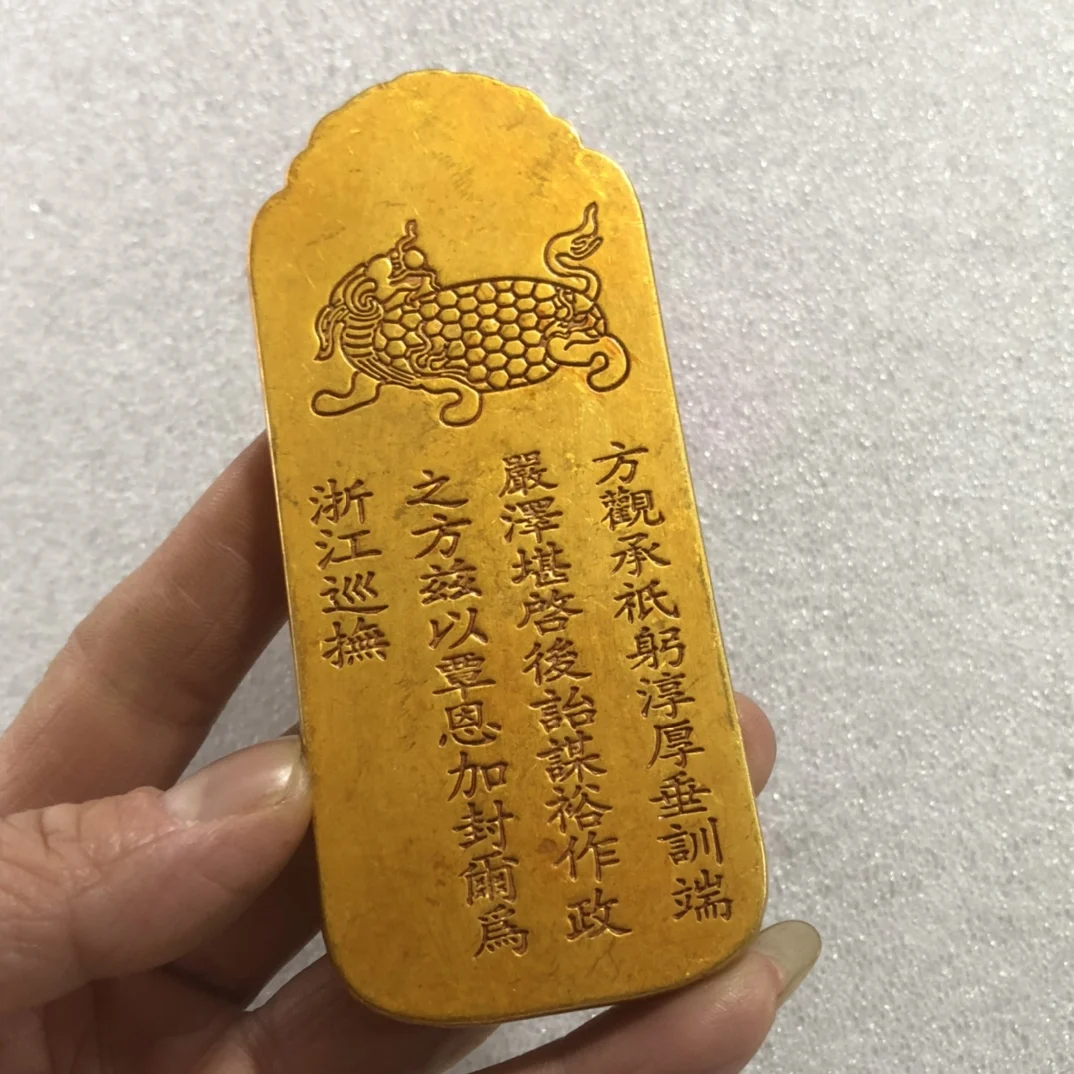 方觀承祇躬淳厚垂訓端
嚴澤堪啓後詒謀裕作政
之方兹以覃恩加封爾爲
浙江巡撫